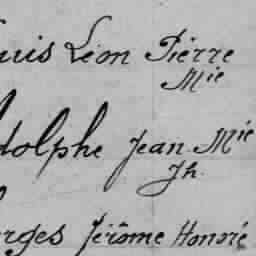 uis Léon Pierre
Mie
dolphe Jean Mie
Jh.
orges Jérôme Honoré